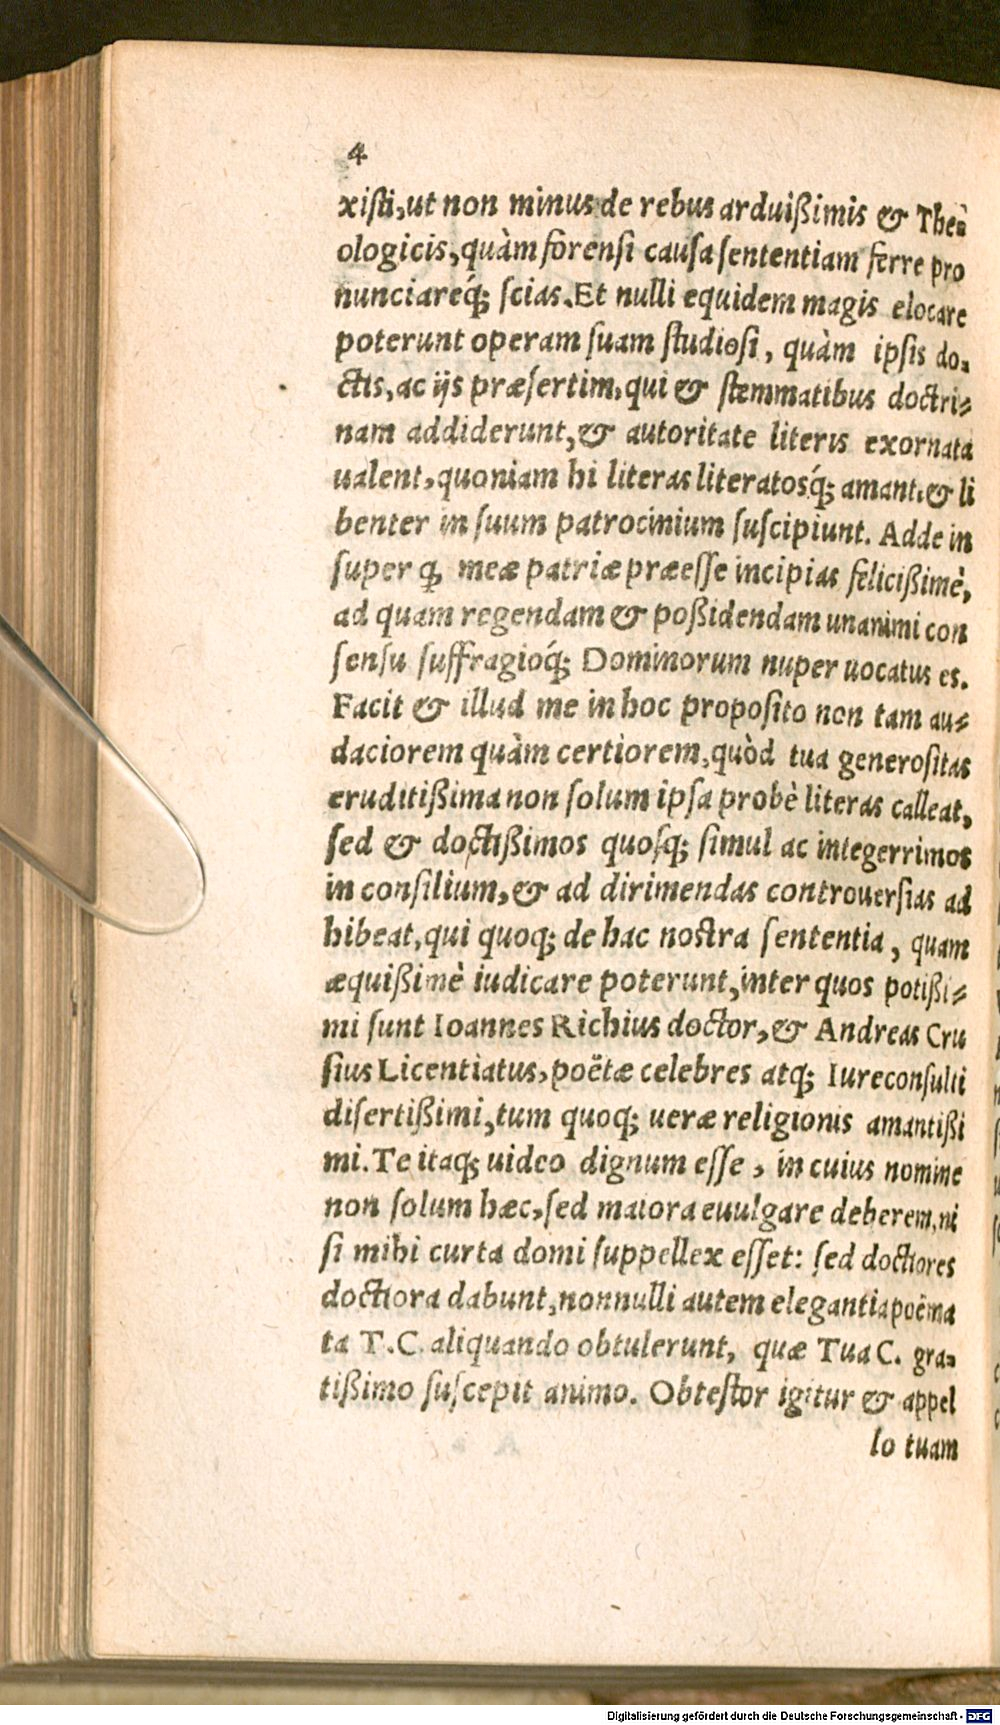 4
xiſti, ut non minus de rebus arduißimis & The⸗
ologicis, quàm forenſi cauſa ſententiam ferre pro
nunciareq́; ſcias. Et nulli equidem magis elocare
poterunt operam ſuam ſtudioſi, quàm ipſis do⸗
ctis, ac ijs præſertim, qui & ſtemmatibus doctri⸗
nam addiderunt, & autoritate literis exornata
ualent, quoniam hi literas literatosq́; amant, & li
benter in ſuum patrocinium ſuſcipiunt. Adde in
ſuper ꝙ meæ patriæ præeſſe incipias feliciſſimè,
ad quam regendam & poßidendam unanimi con
ſenſu ſuffragioq́; Dominorum nuper uocatus es.
Facit & illud me in hoc propoſito non tam au⸗
daciorem quàm certiorem, quòd tua generoſitas
eruditißima non ſolum ipſa probè literas calleat,
ſed & doctißimos quoſq; ſimul ac integerrimos
in conſilium, & ad dirimendas controuerſias ad
hibeat, qui quoq; de hac noſtra ſententia, quam
æquißimè iudicare poterunt, inter quos potißi⸗
mi ſunt Ioannes Richius doctor, & Andreas Cru
ſius Licentiatus, poëtæ celebres atq; Iureconſulti
diſertißimi, tum quoq; ueræ religionis amantißi
mi. Te itaq; uideo dignum eſſe, in cuius nomine
non ſolum hæc, ſed maiora euulgare deberem, ni
ſi mihi curta domi ſuppellex eſſet: ſed doctiores
doctiora dabunt, nonnulli autem elegantia poëma
ta T.C. aliquando obtulerunt, quæ Tua C. gra⸗
tißimo ſuſcepit animo. Obteſtor igitur & appel
lo tuam
Digitalisierung gefördert durch die Deutsche Forschungsgemeinschaft - DFG